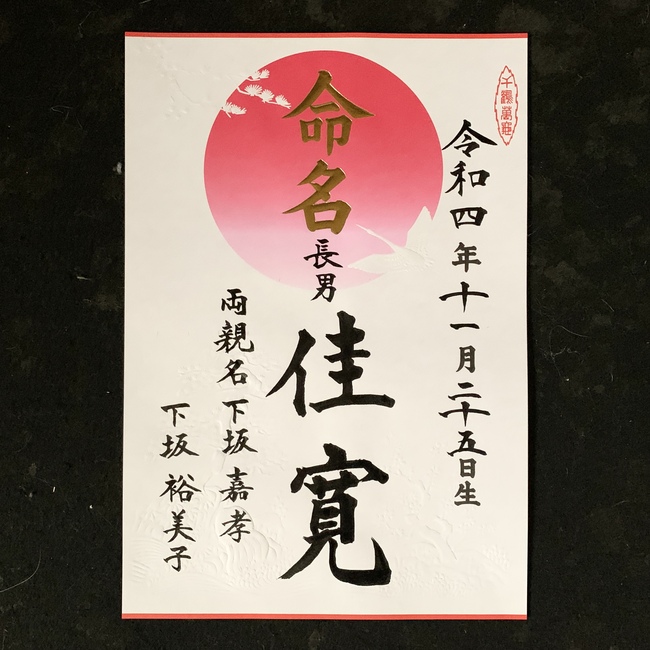 令和四年十一月二十五日生
命名
長男
佳寛
両親名 下坂 嘉孝
下坂 裕美子